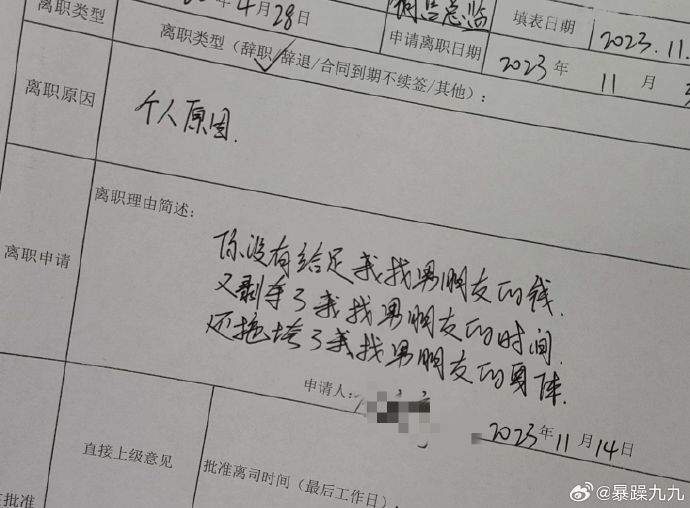 离职类型
年4月28日
填表日期
2023.11.
申请离职日期
2023年11月
离职类型（辞职/辞退/合同到期不续签/其他）：
离职原因
个人原因.
离职理由简述：
离职申请
你没有给足我找男朋友的钱.
又剥夺了我找男朋友的时间.
还拖垮了我找男朋友的身体.
申请人：
2023年11月14日
直接上级意见
批准离司时间（最后工作日）：
批准
@暴躁九九